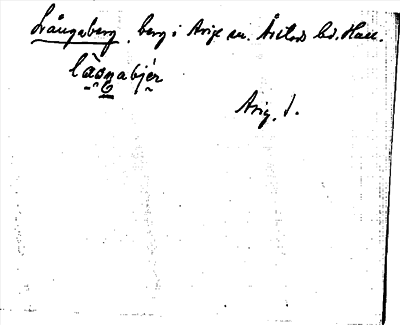 Långaberg, berg i Arige sn. Årstads hd. Hall.
làọŋabjér
Arig. s.